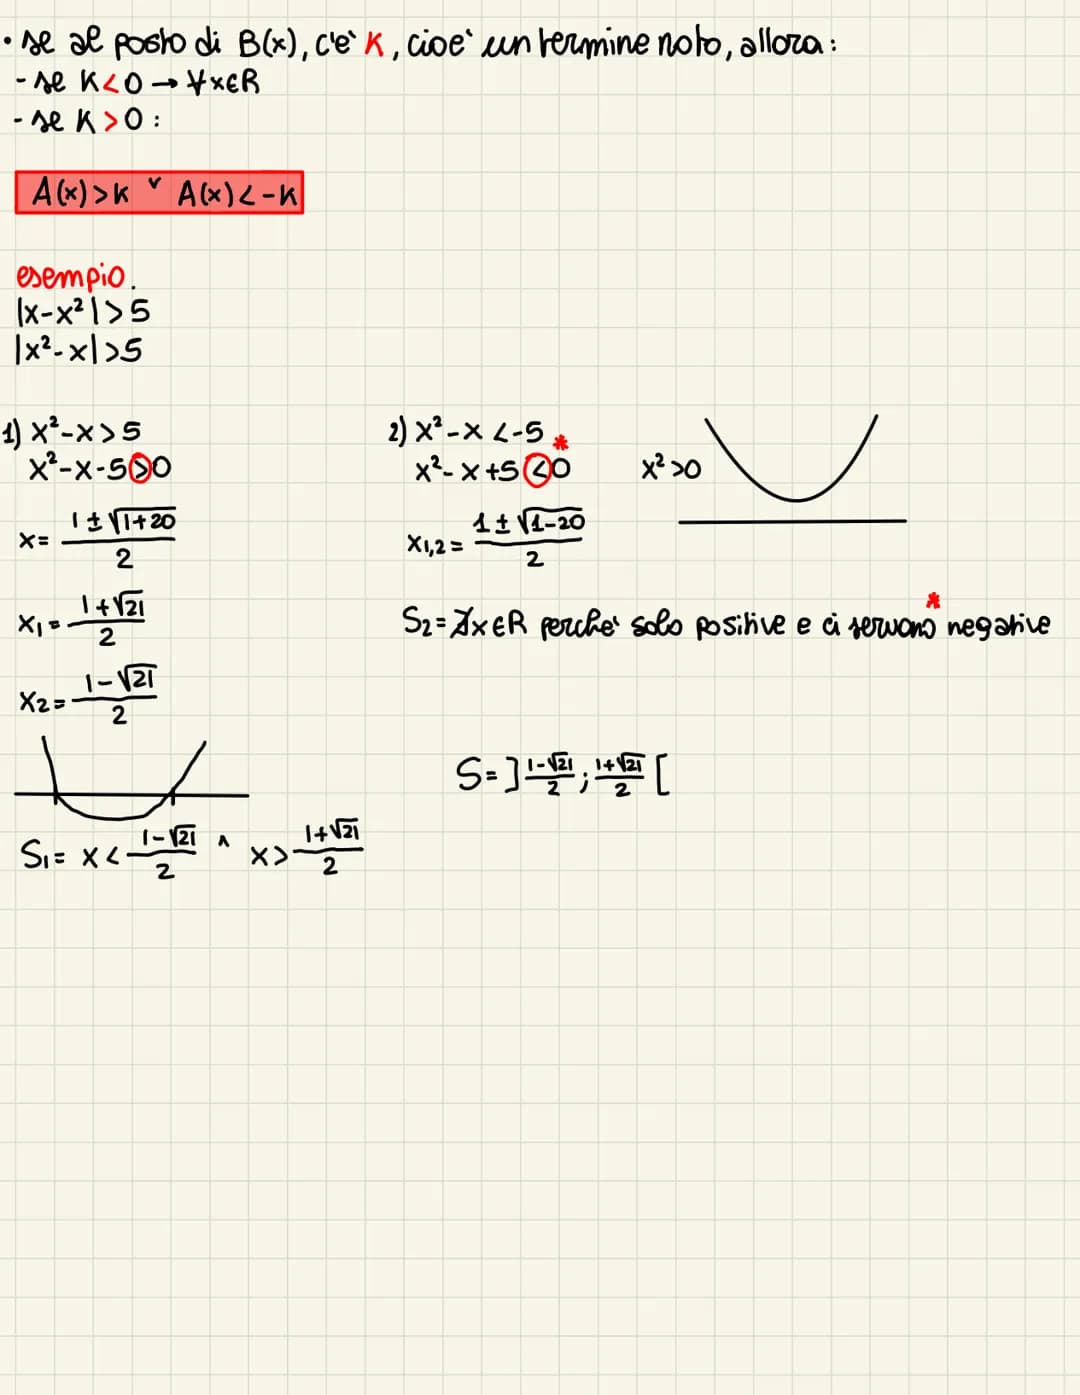 • se al posto di B(x), c'e' K, cioe' un termine noto, allora:
- se K<0 → ∀x∈R
- se K>0:
A(x)>K ˅ A(x)<-K
esempio.
|x-x²|>5
|x²-x|>5
1) x²-x>5
x²-x-5>0
x= (1±√1+20)/2
x₁= (1+√21)/2
x₂= (1-√21)/2
S₁= x< (1-√21)/2 ^ x> (1+√21)/2
2) x²-x<-5 *
x²-x+5<0
x²>0
x₁,₂= (1±√1-20)/2
*
S₂=∄x∈R perche' solo positive e ci servono negative
S=](1-√21)/2; (1+√21)/2[